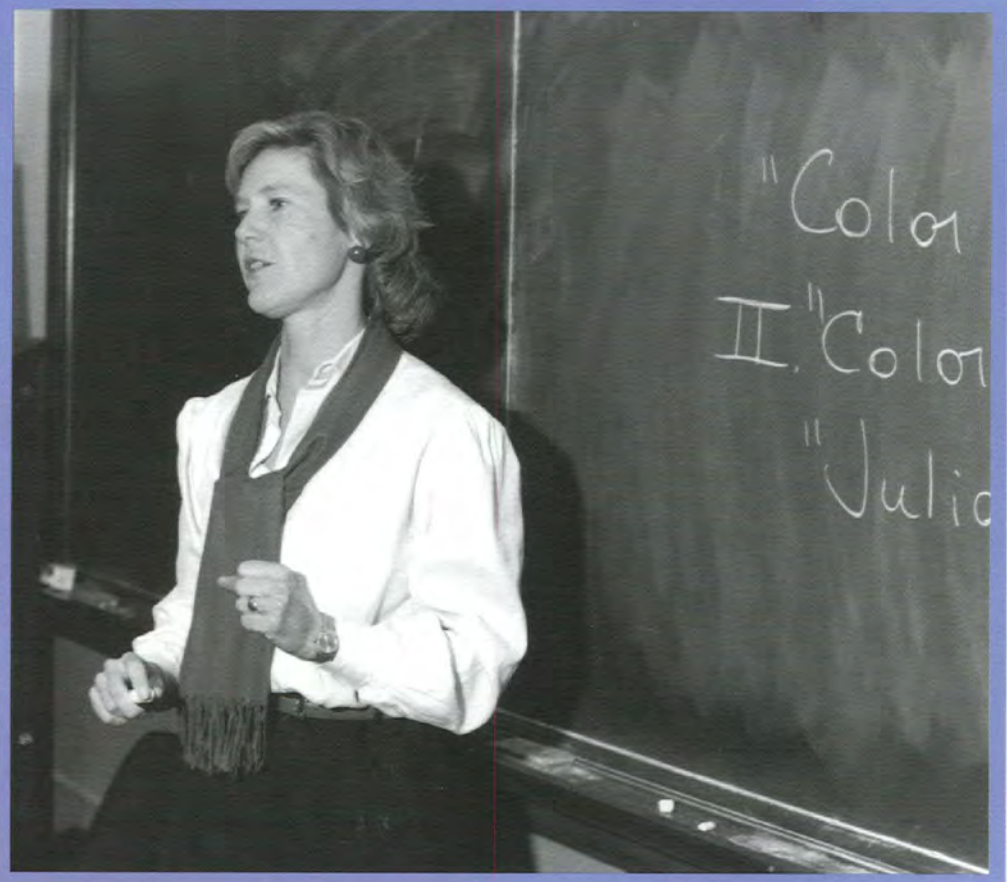 "Color
II. "Color
"Julia